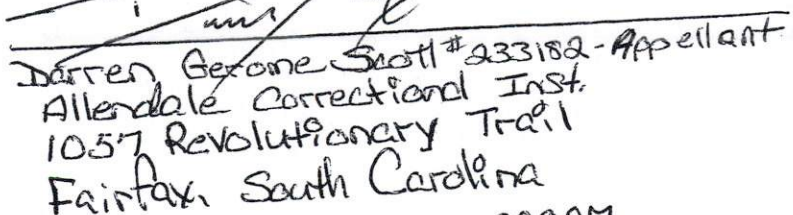 Darren Gerome Scott #233182-Appellant
Allendale Correctional Inst.
1057 Revolutionary Trail
Fairfax, South Carolina